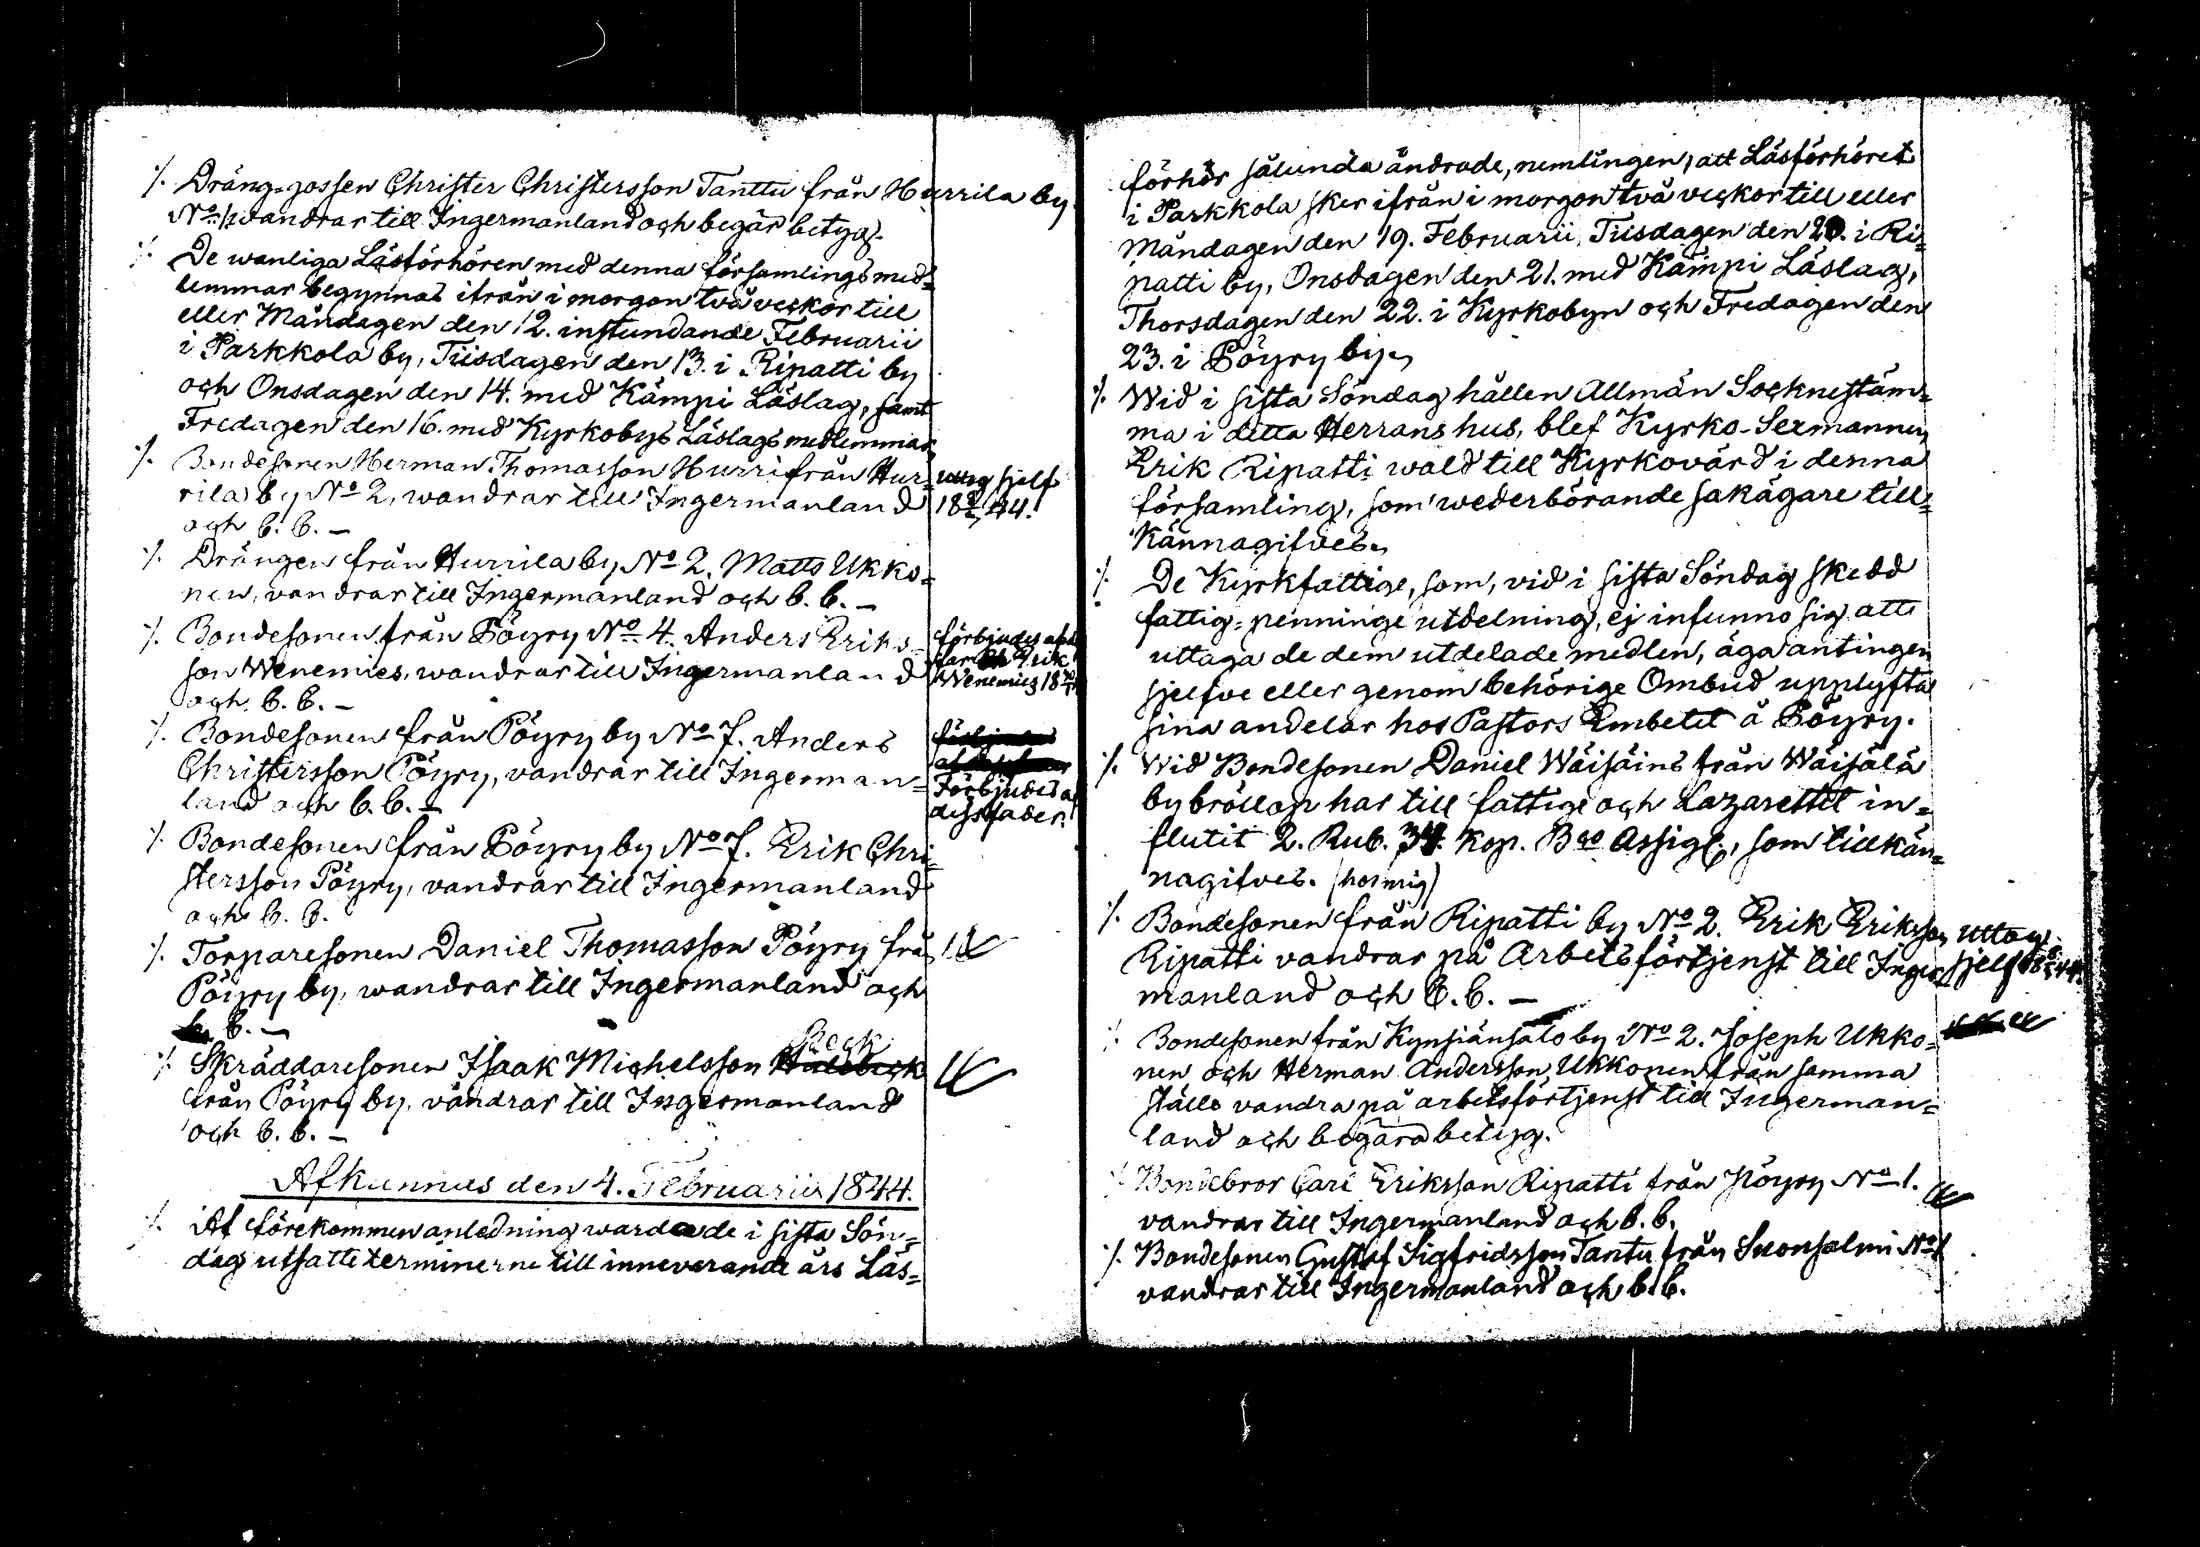 ·/. Dräng-gossen Christer Christersson Tanttu från Hurrila by
No 1. wandrar till Ingermanland och begär betyg.
·/. De wanliga Läsförhören med denna församlings med=
lemmar begynnas ifrån i morgon två veckor till
eller Måndagen den 12. instundande Februarii
i Parkkola by, Tisdagen den 13. i Ripatti by
och Onsdagen den 14. med Kämpi Läslag, samt
Fredagen den 16. med Kyrkobys Läslags medlemmar
·/. Bondesonen Herman Thomasson Hurri från Hur=
rila by No 2, wandrar till Ingermanland
och b. b. —
uttog sjelf
·/. Drängen från Hurrila by No 2. Matts Ukko=
nen, vandrar till Ingermanland och b. b. —
·/. Bondesonen från Pöyry No 4. Anders Eriks=
son Wenemies, wandrar till Ingermanland
och b. b. —
förbjudes af
far Erik
Wenemies
·/. Bondesonen från Pöyry by No 7. Anders
Christersson Pöyry, vandrar till Ingerman=
land och b. b. —
Förbjudes af
dess fader.
·/. Bondesonen från Pöyry by No 7. Erik Chri=
stersson Pöyry, vandrar till Ingermanland
och b. b.
·/. Torparesonen Daniel Thomasson Pöyry från
Pöyry by, wandrar till Ingermanland och
b. —
·/. Skräddaresonen Isaak Michelsson Beck
från Pöyry by, vandrar till Ingermanland
och b. b. —
Afkunnus den 4. Februarii 1844.
·/. Af förekommen anledning warda de i sista Sön=
dag utsatte terminerne till inneverande års Läs=
förhör sålunda ändrade, nemlingen, att Läsförhöret
i Parkkola sker ifrån i morgon två veckor till eller
Måndagen den 19. Februarii, Tisdagen den 20. i Ri=
patti by, Onsdagen den 21. med Kämpi Läslag,
Thorsdagen den 22. i Kyrkobyn och Fredagen den
23. i Pöyry by.
·/. Wid i sista Söndag hållen Allmän Socknestäm=
ma i detta Herrans hus, blef Kyrko-Sexmannen
Erik Ripatti wald till Kyrkovärd i denna
församling, som wederbörande sakägare till=
kännagifves.
·/. De Kyrkfattige, som, vid i sista Söndag skedd
fattig=penninge utdelning, ej infunno sig att
uttaga de dem utdelade medlen, äga antingen
sjelfve eller genom behörige Ombud upplyfta
sina andelar hos Pastors Embetet å Pöyry.
·/. Wid Bondesonen Daniel Wäisäins från Wäisälä
by bröllop har till fattige och Lazarettet in=
flutit 2. Rub. 34. kop. Bco Assign., som tillkän=
nagifves. (hos mig)
·/. Bondesonen från Ripatti by No 2. Erik Eriksson
Ripatti vandrar på Arbetsförtjenst till Inger=
manland och b. b. —
uttog
sjelf
·/. Bondesonen från Kynsiänsalo by No 2. Joseph Ukko=
nen och Herman Andersson Ukkonen från samma
ställe vandra på arbetsförtjenst till Ingerman=
land och begära betyg.
·/. Bondebror Carl Eriksson Ripatti från Pöyry No 1.
vandrar till Ingermanland och b. b.
·/. Bondesonen Gustaf Sigfridsson Tantu från Suonsalmi No 1
vandrar till Ingermanland och b. b.